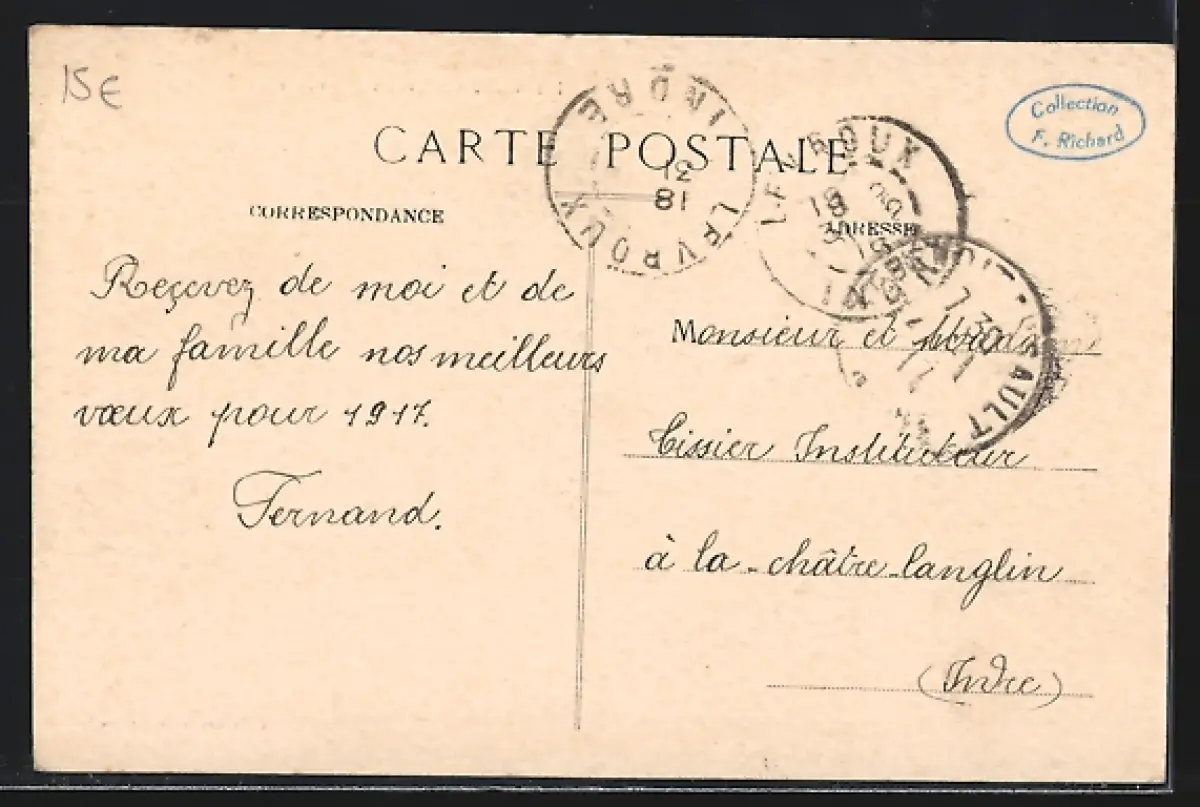 15€
Collection
F. Richard
CARTE POSTALE
INDRE
LEVROUX
18
31
LEVROUX
18
CORRESPONDANCE
ADRESSE
Reçevez de moi et de
ma famille nos meilleurs
vœux pour 1917.
Fernand.
Monsieur et Madame
Tissier Instituteur
à la-châtre-langlin
(Indre)